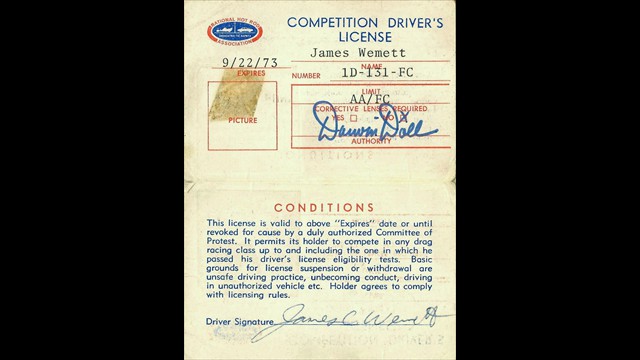 NATIONAL HOT ROD
ASSOCIATION
COMPETITION DRIVER'S
LICENSE
James Wemett
NAME
9/22/73
EXPIRES
NUMBER 1D-131-FC
LIMIT
AA/FC
CORRECTIVE LENSES REQUIRED
YES NO X
Darwin Doll
AUTHORITY
PICTURE
CONDITIONS
This license is valid to above "Expires" date or until
revoked for cause by a duly authorized Committee of
Protest. It permits its holder to compete in any drag
racing class up to and including the one in which he
passed his driver's license eligibility tests. Basic
grounds for license suspension or withdrawal are
unsafe driving practice, unbecoming conduct, driving
in unauthorized vehicle etc. Holder agrees to comply
with licensing rules.
Driver Signature James C Wemett